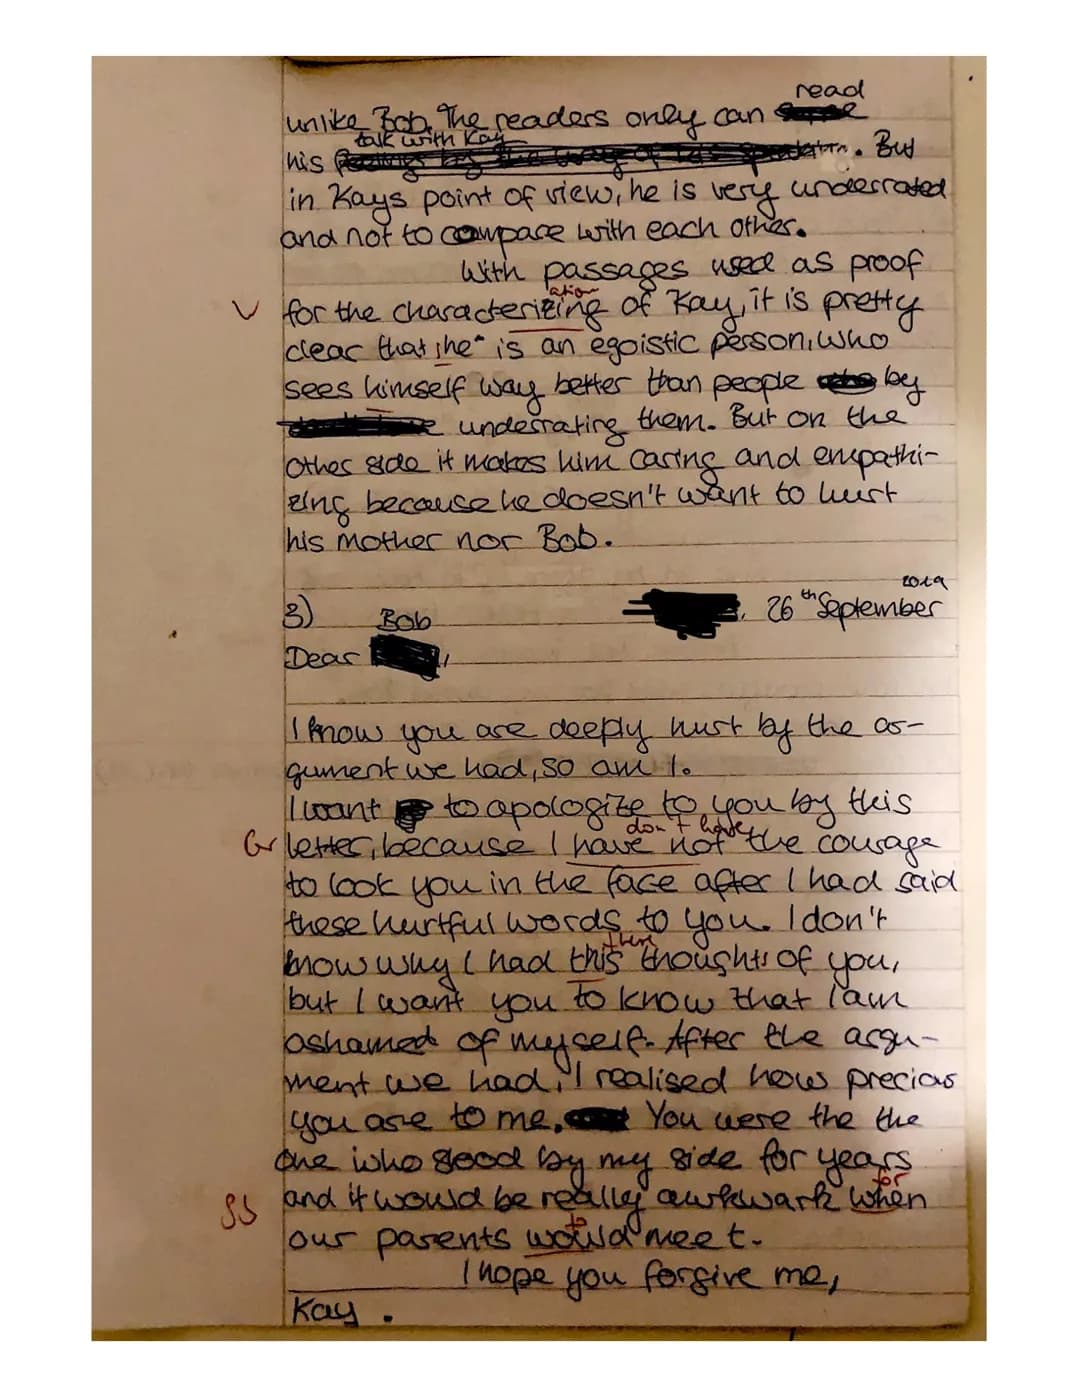 read
unlike Bob. The readers only can
talk with Kay
his. But
in Kays point of view, he is very underrated
and not to compare with each other.
With passages used as proof
ation
V for the characterizing of Kay, it is pretty
clear that he is an egoistic person, who
sees himself way better than people by
underrating them. But on the
other side it makes him caring and empathi-
zing because he doesn't want to hurt
his mother nor Bob.
2019
3) Bob , 26th September
Dear ,
I know you are deeply hurt by the ar-
gument we had, so am I.
I want to apologize to you by this
don't have
Gr letter, because I have not the courage
to look you in the face after I had said
these hurtful words to you. I don't
these
know why I had this thoughts of you,
but I want you to know that I am
ashamed of myself. After the argu-
ment we had, I realised how precios
you are to me. You were the the
one who stood by my side for years
for
SB and it would be really awkwark when
to
our parents would meet.
I hope you forgive me,
Kay.